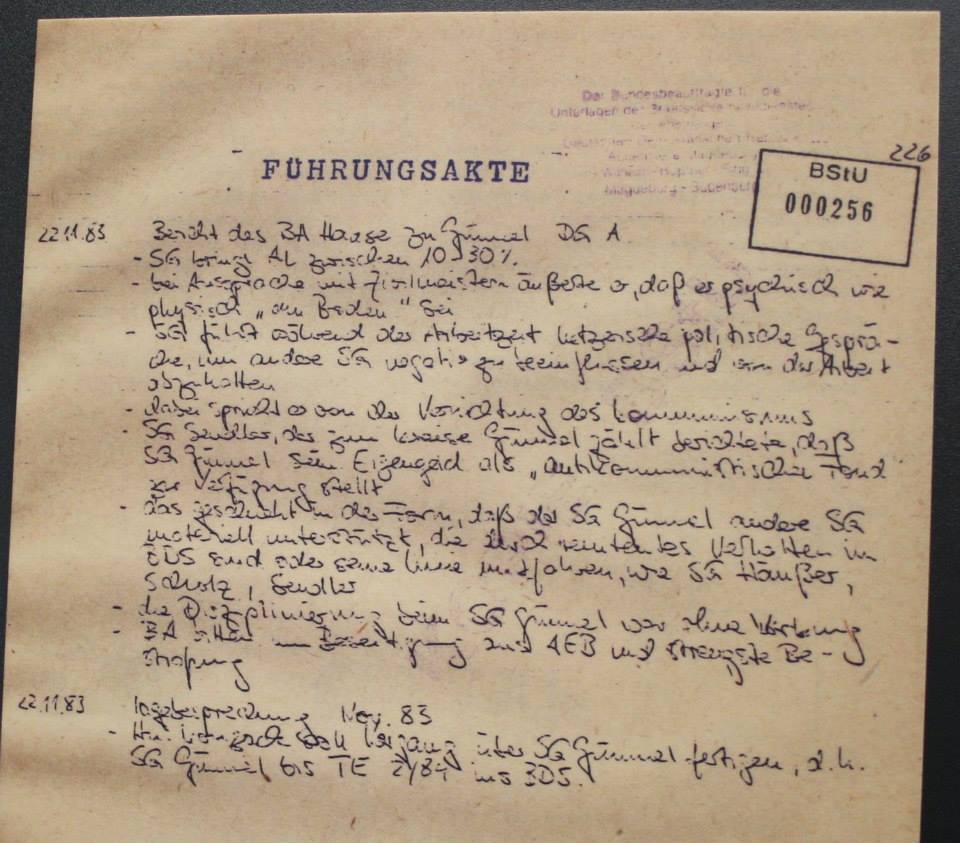 Der Bundesbeauftragte für die
Unterlagen der
Magdeburg - Sudenburg
226
BStU
000256
FÜHRUNGSAKTE
22.11.83 Bericht des BA Haase zu Gümmel DG A
- SG bringt AL zwischen 10-30%
- bei Aussprache mit Zivilmeistern äußerte er, daß er psychisch wie
physisch „am Boden" sei
- SG führt während der Arbeitszeit hetzerische politische Gesprä-
che, um andere SG negativ zu beeinflussen und von der Arbeit
abzuhalten
- dabei spricht er von der Vernichtung des Kommunismus
- SG Sendler, der zum Kreise Gümmel zählt berichtete, daß
SG Gümmel sein Eigengeld als „antikommunistischer Fond
zur Verfügung stellt
- das geschieht in der Form, daß der SG Gümmel andere SG
materiell unterstützt, die durch renitentes Verhalten im
sind oder seine Linie mitfahren, wie SG Häußer,
Scholz, Sendler
- die Disziplinierung beim SG Gümmel war ohne Wirkung
- BA bitten um aus AEB und strengste Be-
strafung
22.11.83 Lagebesprechung Nov. 83
- soll Vorgang über SG Gümmel fertigen, d.h.
SG Gümmel bis TE 2/84 ins